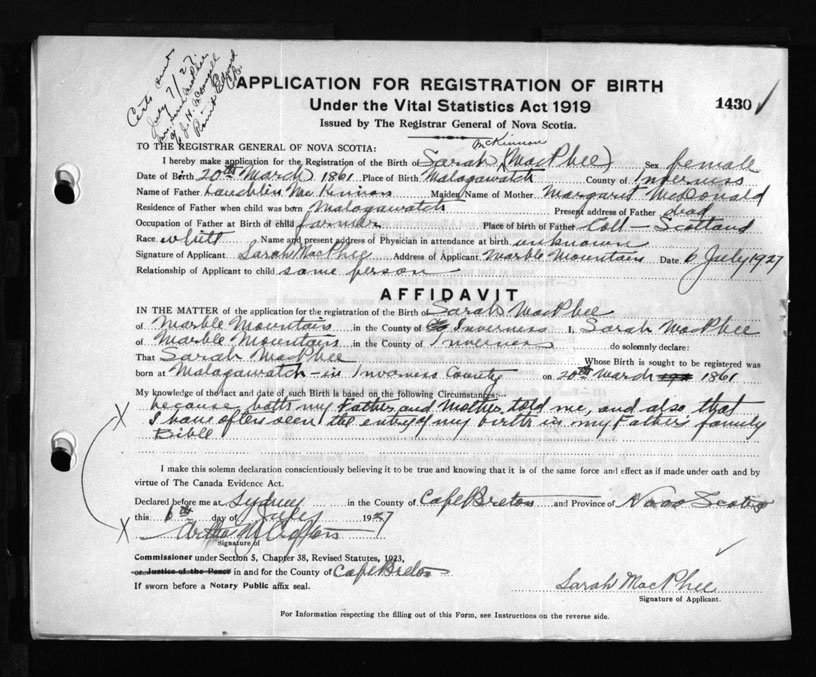 Certs sent
July 7/27
APPLICATION FOR REGISTRATION OF BIRTH
Under the Vital Statistics Act 1919
1430
Issued by The Registrar General of Nova Scotia.
TO THE REGISTRAR GENERAL OF NOVA SCOTIA:
McKinnon
I hereby make application for the Registration of the Birth of Sarah (MacPhee) Sex female
Date of Birth 20th March 1861 Place of Birth Malagawatch County of Inverness
Name of Father Lauchlin McKinnon Maiden Name of Mother Margaret McDonald
Residence of Father when child was born Malagawatch Present address of Father dead
Occupation of Father at Birth of child farmer Place of birth of Father Coll - Scotland
Race white Name and present address of Physician in attendance at birth unknown
Signature of Applicant Sarah MacPhee Address of Applicant Marble Mountain Date 6 July 1927
Relationship of Applicant to child same person
AFFIDAVIT
IN THE MATTER of the application for the Registration of Birth of Sarah MacPhee
of Marble Mountain in the County of Inverness I, Sarah MacPhee
of Marble Mountain in the County of Inverness do solemnly declare:
That Sarah MacPhee Whose Birth is sought to be registered was
born at Malagawatch - in Inverness County on 20th March 1861
My knowledge of the fact and date of such Birth is based on the following Circumstances:
because both my Father and Mother told me, and also that
X I have often seen the entry of my birth in my Father's family
Bible
I make this solemn declaration conscientiously believing it to be true and knowing that it is of the same force and effect as if made under oath and by
virtue of The Canada Evidence Act.
Declared before me at Sydney in the County of Cape Breton and Province of Nova Scotia
this 6th day of July 1927
X
Signature of
Commissioner under Section 5, Chapter 38, Revised Statutes, 1923,
or Justice of the Peace in and for the County of Cape Breton
If sworn before a Notary Public affix seal.
Sarah MacPhee
Signature of Applicant.
For Information respecting the filling out of this Form, see Instructions on the reverse side.